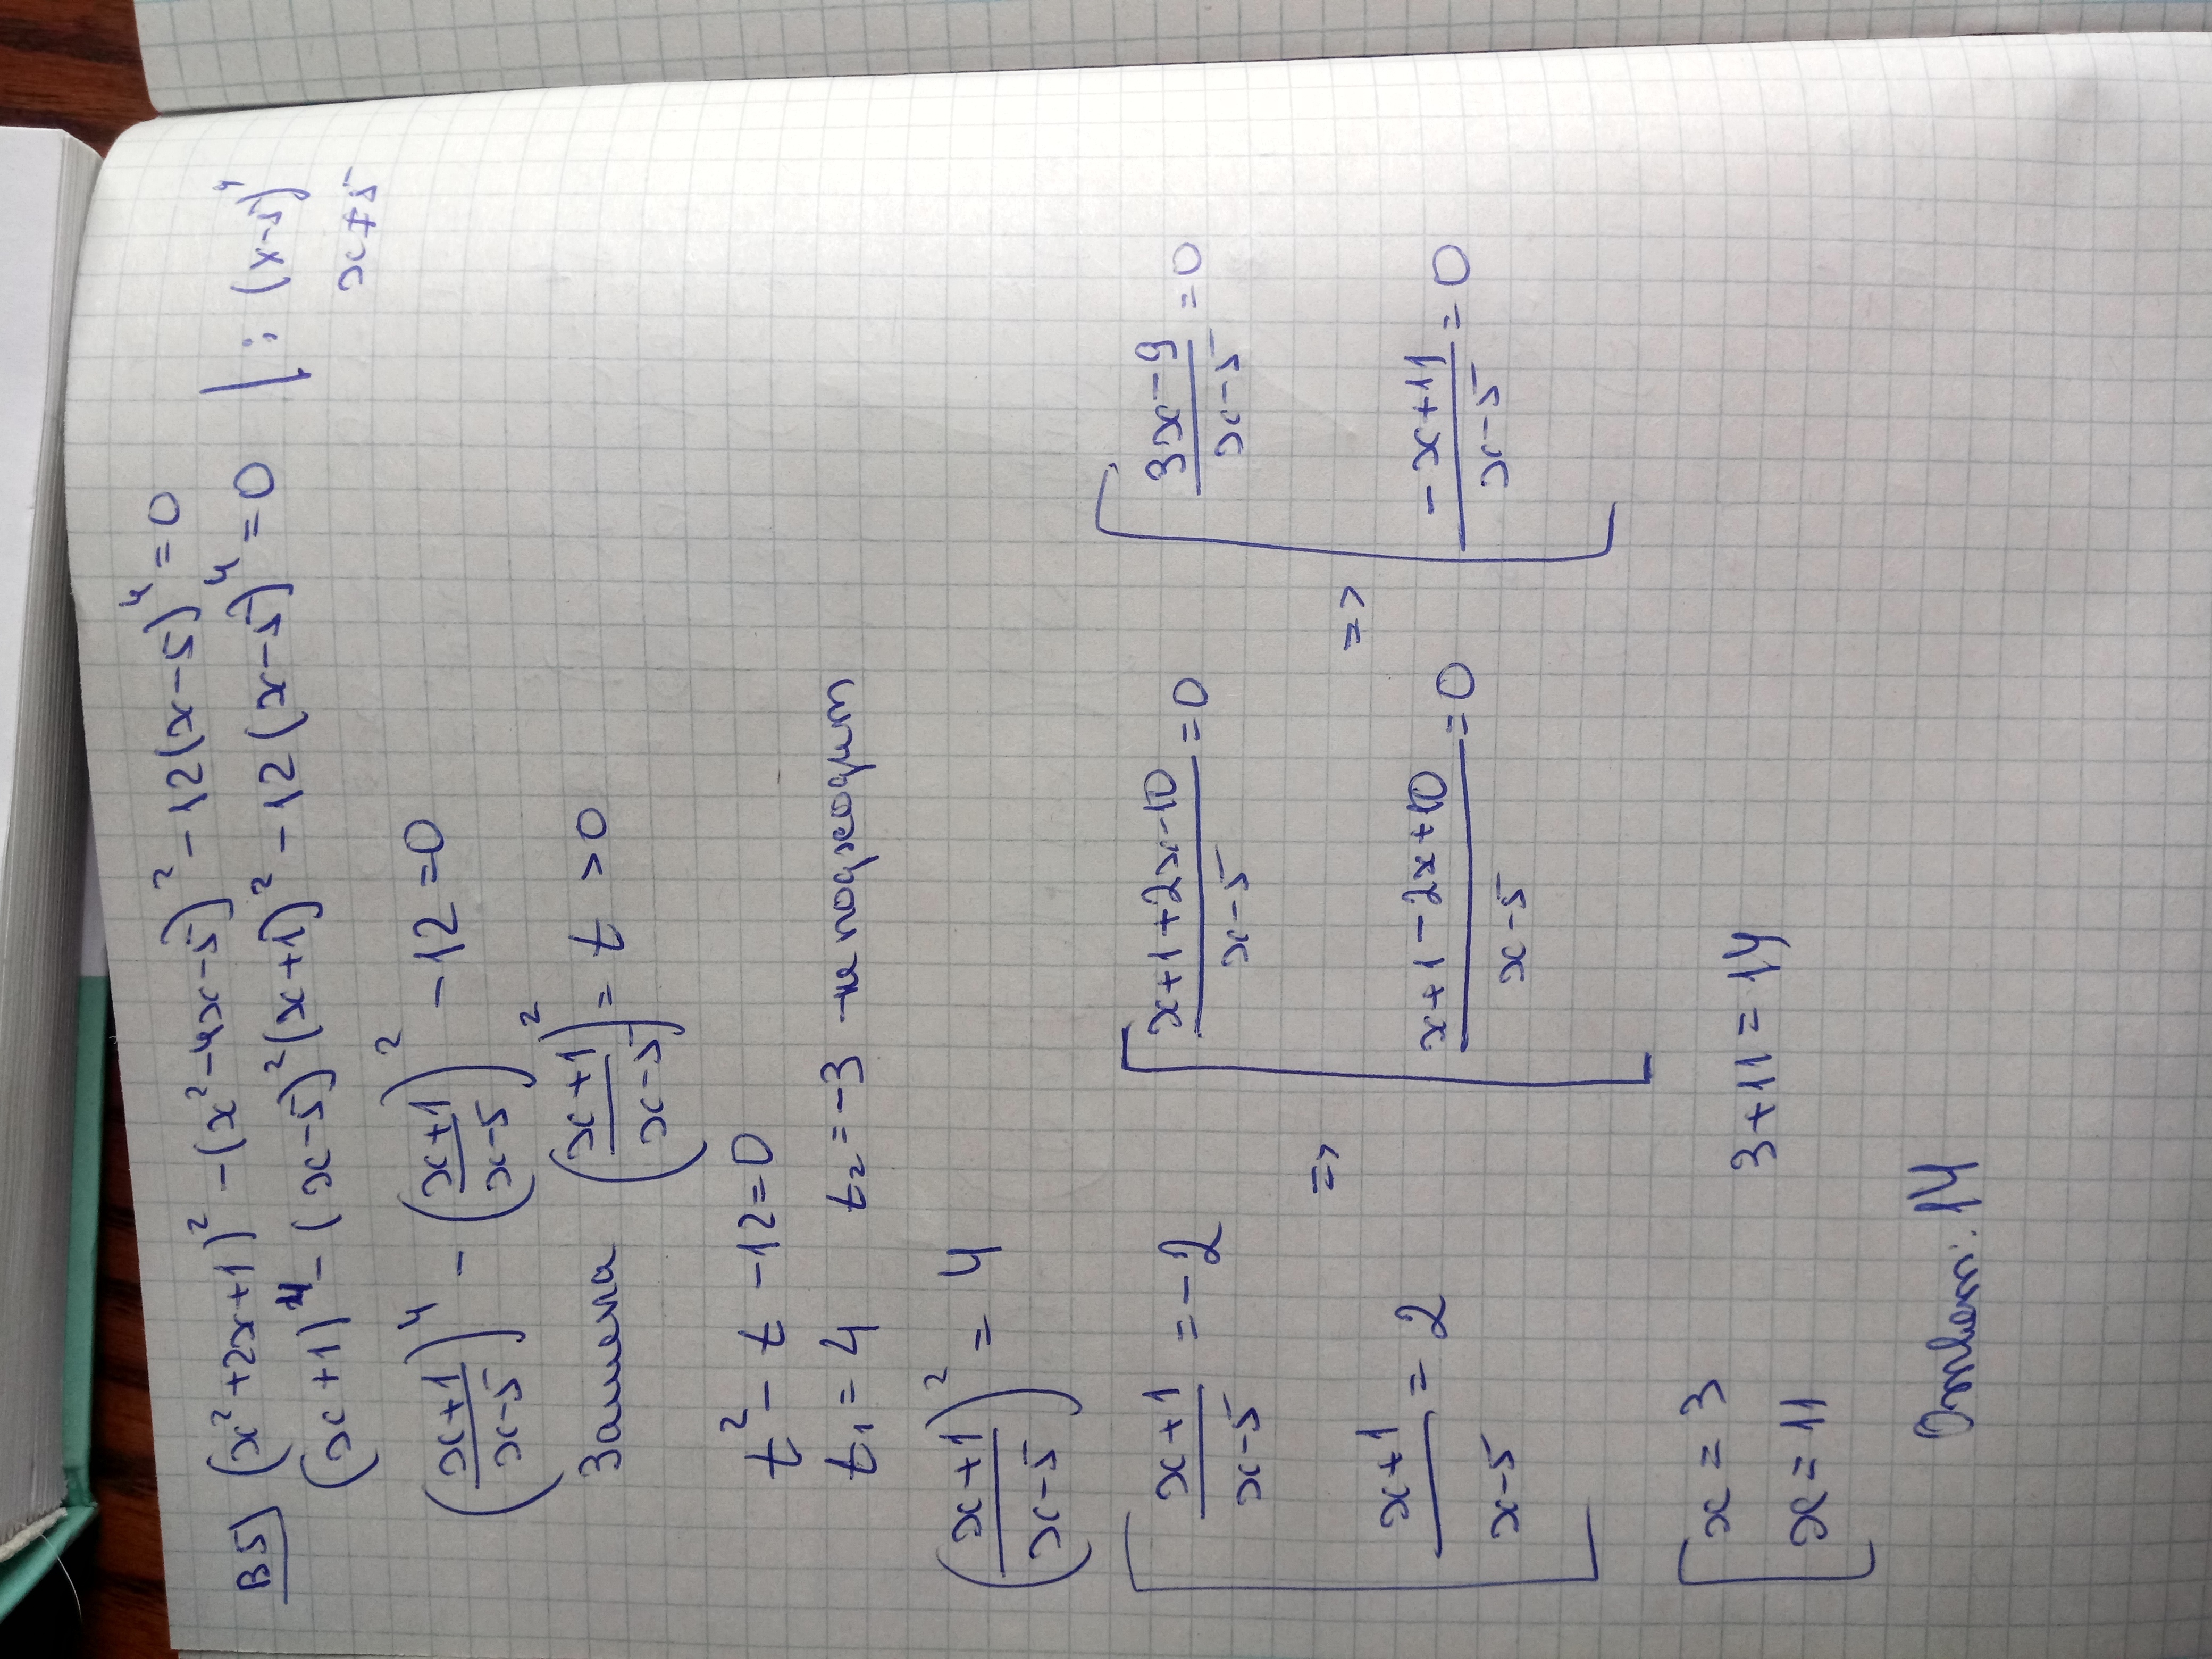 B5) (x²+2x+1)² -(x²-4x-5)² -12(x-5)⁴=0
(x+1)⁴ -(x-5)²(x+1)² -12(x-5)⁴=0 |:(x-5)⁴
x≠5
((x+1)/(x-5))⁴ - ((x+1)/(x-5))² -12=0
Замена ((x+1)/(x-5))² = t >0
t² - t -12=0
t₁=4 t₂=-3 - не подходит
((x+1)/(x-5))² = 4
[ (x+1)/(x-5) = -2 => [ (x+1+2x-10)/(x-5) =0 => [ (3x-9)/(x-5) =0
(x+1)/(x-5) = 2 (x+1-2x+10)/(x-5) =0 (-x+11)/(x-5) =0
[ x=3 3+11=14
x=11
Ответ: 14